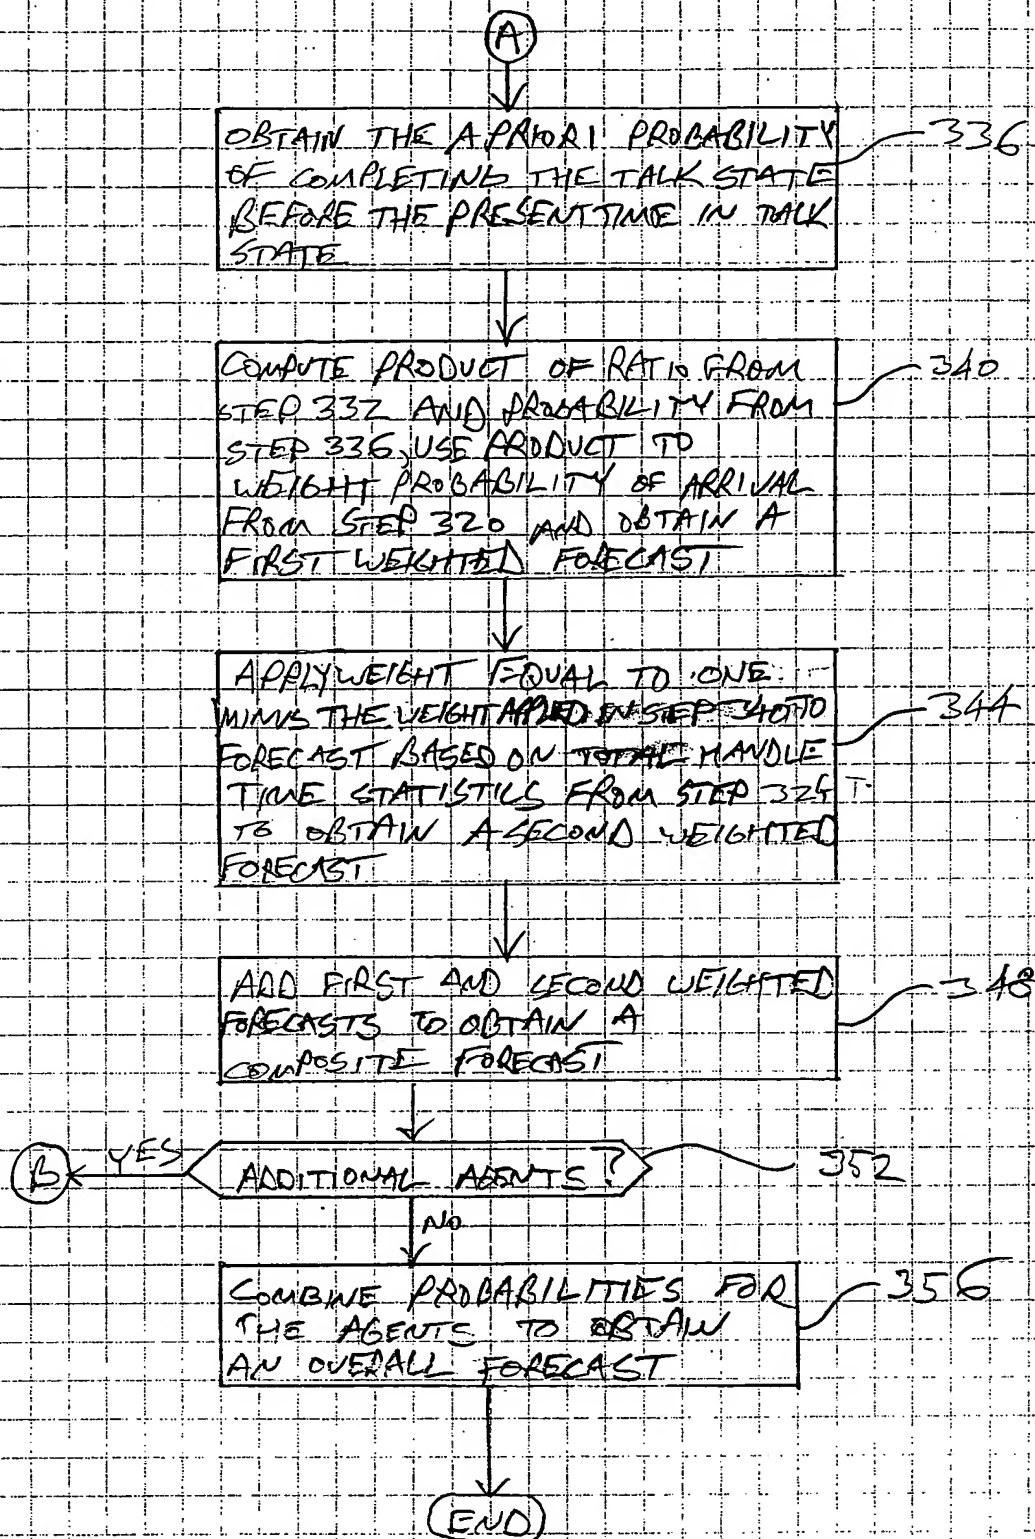 A
OBTAIN THE A PRIORI PROBABILITY
OF COMPLETING THE TALK STATE
BEFORE THE PRESENT TIME IN TALK
STATE
336
COMPUTE PRODUCT OF RATIO FROM
STEP 332 AND PROBABILITY FROM
STEP 336, USE PRODUCT TO
WEIGHT PROBABILITY OF ARRIVAL
FROM STEP 320 AND OBTAIN A
FIRST WEIGHTED FORECAST
340
APPLY WEIGHT EQUAL TO ONE
MINUS THE WEIGHT APPLIED IN STEP 340 TO
FORECAST BASED ON TOTAL HANDLE
TIME STATISTICS FROM STEP 324
TO OBTAIN A SECOND WEIGHTED
FORECAST
344
ADD FIRST AND SECOND WEIGHTED
FORECASTS TO OBTAIN A
COMPOSITE FORECAST
348
B YES
ADDITIONAL AGENTS?
352
NO
COMBINE PROBABILITIES FOR
THE AGENTS TO OBTAIN
AN OVERALL FORECAST
356
END